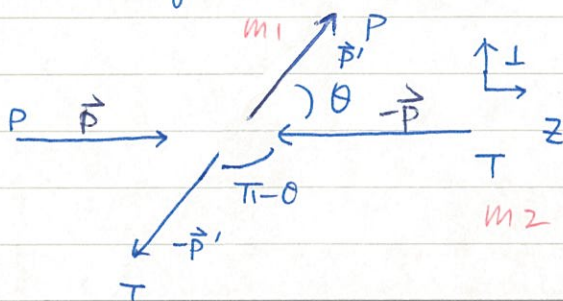 m1
P
p⃗'
⊥
θ
P
p⃗
-p⃗
Z
T
π-θ
m2
-p⃗'
T